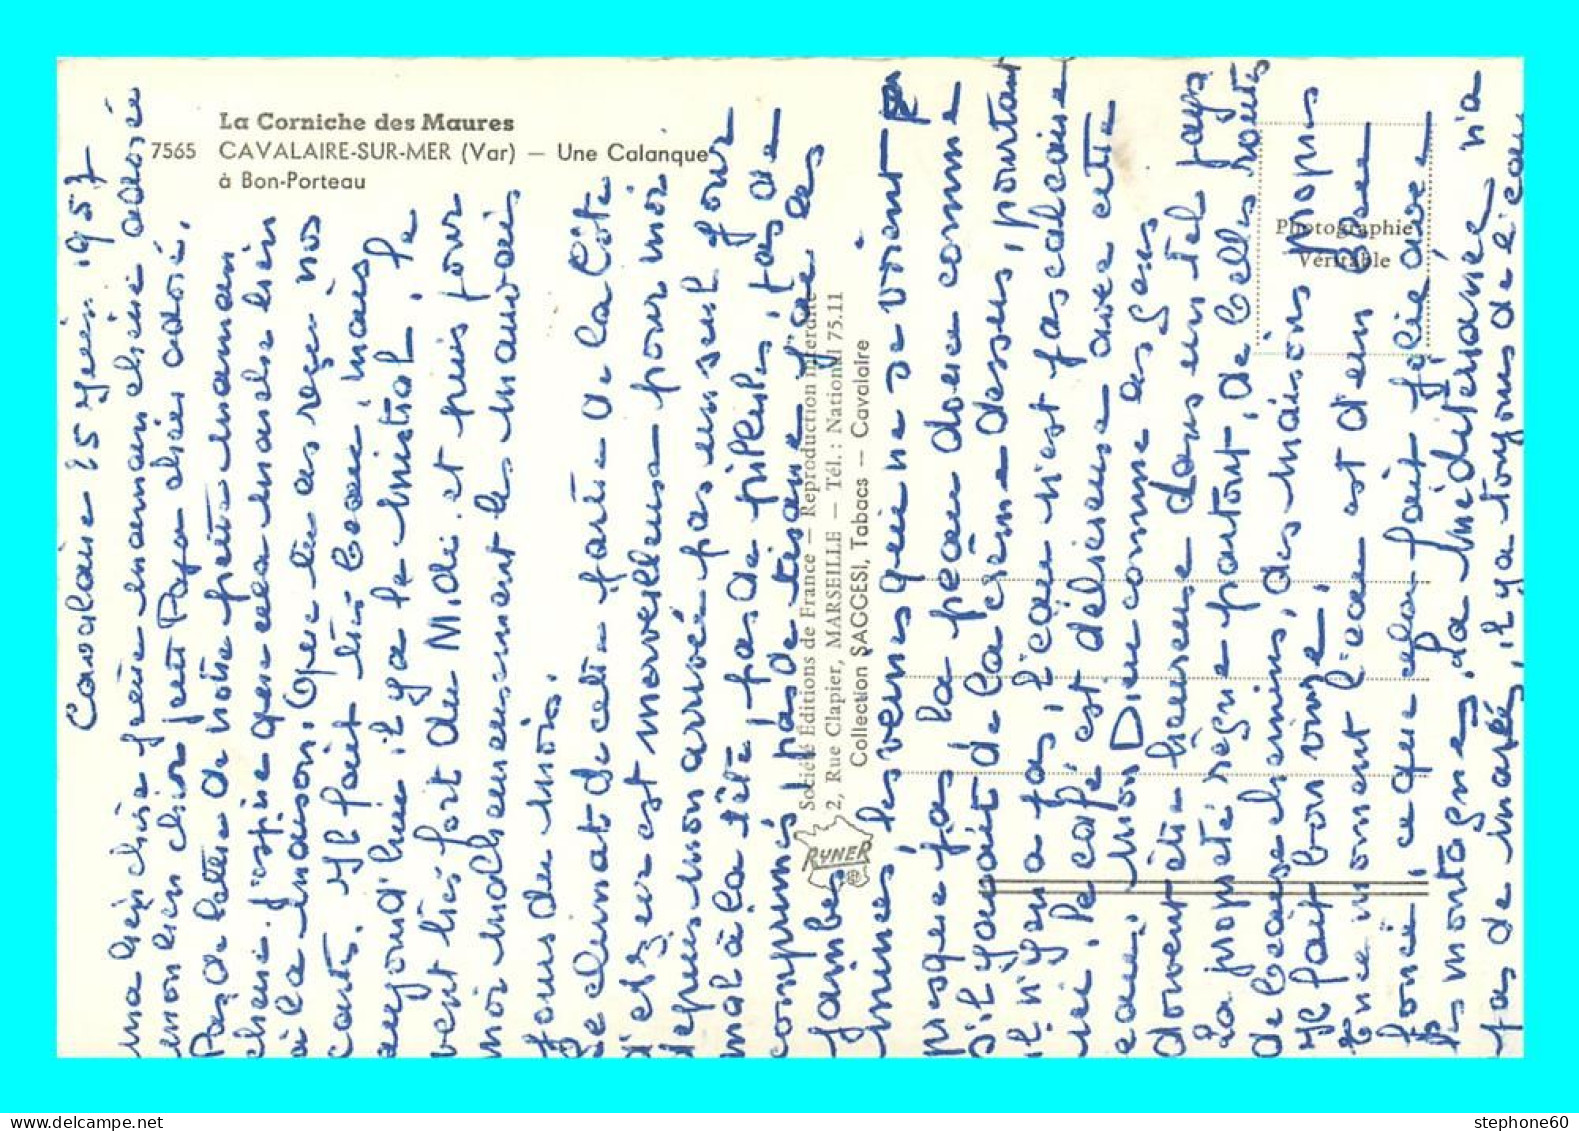 La Corniche des Maures
7565 CAVALAIRE-SUR-MER (Var) — Une Calanque
à Bon-Porteau
Photographie
Véritable
Société Éditions de France — Reproduction interdite
2, Rue Clapier, MARSEILLE — Tél. : National 75.11
Collection SAGGESI, Tabacs — Cavalaire
RYNER
Cavalaire 25 Juin 1957
ma bien chère petite maman chérie adorée
mon bien cher petit Papa chéri adoré,
Pas de lettre de notre petite maman
chérie. J'espère que cela marche bien
à la maison, que tu as reçu nos
cartes. Il fait très beau, mais
aujourd'hui il y a le mistral, le
vent très fort du Midi. et puis pour
moi malheureusement les mauvais
jours du mois.
Le climat de cette partie de la Côte
d'Azur est merveilleux pour moi
depuis mon arrivée pas un seul jour
mal à la tête, pas de pilules, pas de
comprimés, pas de tisane, j'ai les
jambes
minces, les veines qui ne se voient
presque pas, la peau douce comme
s'il y avait de la crème dessus, pourtant
il n'y en a pas, l'eau n'est pas calcaire
ici. le café est délicieux avec cette
eau. Mon Dieu comme les gens
doivent être heureux dans un tel pays
La propreté règne partout, de belles routes
de beaux chemins, des maisons propres
Il fait bon vivre.
En ce moment l'eau est d'un bleu
foncé, ce que cela fait joli avec
les montagnes. La Méditerranée n'a
pas de marée, il y a toujours de l'eau
stephone60